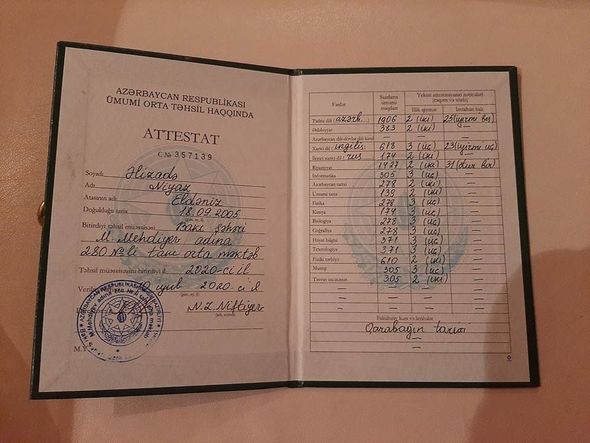 AZƏRBAYCAN RESPUBLİKASI
ÜMUMİ ORTA TƏHSİL HAQQINDA
ATTESTAT
C № 357139
Soyadı Əlizadə
Adı Niyaz
Atasının adı Eldəniz
Doğulduğu tarix 18.09.2005
Bitirdiyi təhsil müəssisəsi Bakı şəhəri
M. Mehdiyev adına
280 №-li tam orta məktəb
Təhsil müəssisəsini bitirdiyi il 2020-ci il
10 iyul 2020-ci il
N.Z.Niftiyev
M.Y.
Fənlər
Saatların ümumi miqdarı
Yekun attestasiyanın nəticələri (rəqəm və sözlə)
İllik qiymət
İmtahan balı
Tədris dili (azərb...) 1906 2 (iki) 25 (iyirmi beş)
Ədəbiyyat 383 2 (iki) —
Azərbaycan dili (dövlət dili kimi) — — —
Xarici dil (ingilis) 618 3 (üç) 23 (iyirmi üç)
İkinci xarici dil (rus) 174 2 (iki) —
Riyaziyyat 1427 2 (iki)
İnformatika 305 3 (üç) —
Azərbaycan tarixi 278 2 (iki) —
Ümumi tarix 139 2 (iki) —
Fizika 278 3 (üç) —
Kimya 174 3 (üç) —
Biologiya 278 3 (üç) —
Coğrafiya 278 3 (üç) —
Həyat bilgisi 371 3 (üç) —
Texnologiya 371 3 (üç) —
Fiziki tərbiyə 610 2 (iki) —
Musiqi 305 3 (üç) —
Təsviri incəsənət 305 2 (iki) —
Fakültativ kurs və dərnəklər
Qarabağın tarixi